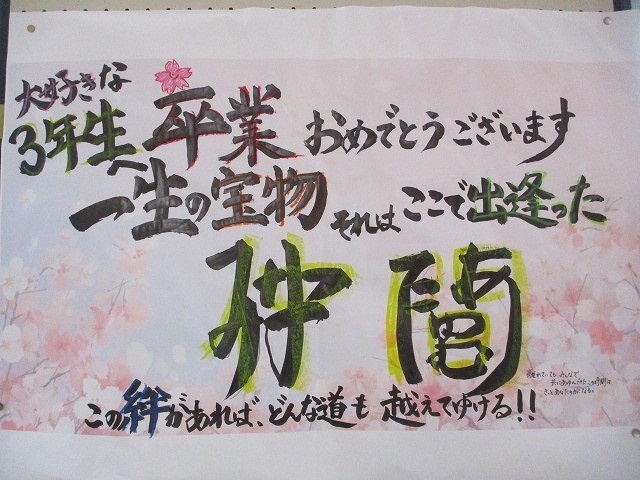 大好きな
3年生へ
卒業おめでとうございます
一生の宝物
それはここで出逢った
仲間
この絆があれば、どんな道も越えてゆける!!